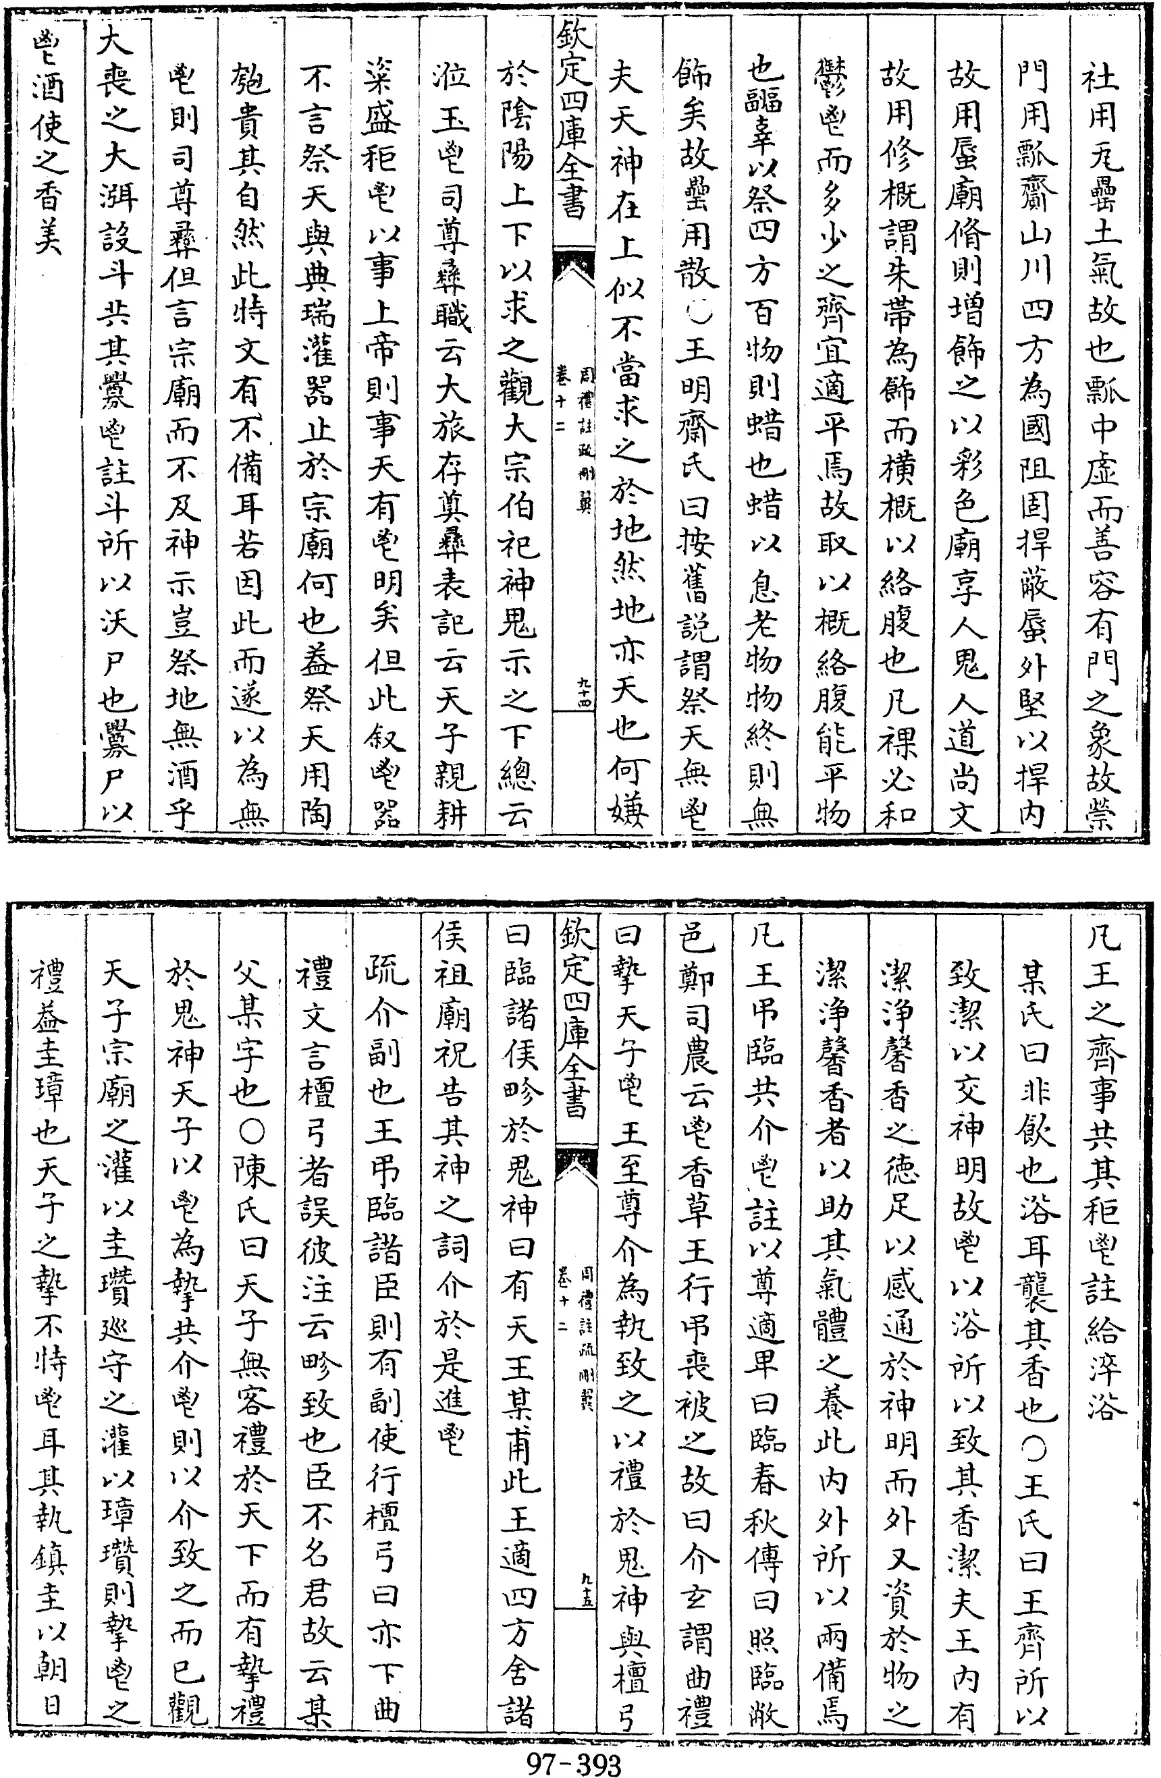 社用瓦罍土氣故也瓢中虛而善容有門之象故禜
門用瓢齎山川四方為國阻固捍蔽蜃外堅以捍内
故用蜃廟脩則增飾之以彩色廟享人鬼人道尚文
故用修概謂朱帶為飾而横概以絡腹也凡祼必和
鬱鬯而多少之齊宜適平焉故取以概絡腹能平物
也疈辜以祭四方百物則蜡也蜡以息老物物終則無
飾矣故罍用散○王明齋氏曰按舊説謂祭天無鬯
夫天神在上似不當求之於地然地亦天也何嫌
欽定四庫全書
周禮註疏刪翼
卷十二
九十四
於陰陽上下以求之觀大宗伯祀神鬼示之下總云
涖玉鬯司尊彞職云大旅存奠彞表記云天子親耕
粢盛秬鬯以事上帝則事天有鬯明矣但此叙鬯器
不言祭天與典瑞灌器止於宗廟何也葢祭天用陶
匏貴其自然此特文有不備耳若因此而遂以為無
鬯則司尊彞但言宗廟而不及神示豈祭地無酒乎
大喪之大渳設斗共其釁鬯註斗所以沃尸也釁尸以
鬯酒使之香美
凡王之齊事共其秬鬯註給淬浴
某氏曰非飲也浴耳襲其香也○王氏曰王齊所以
致潔以交神明故鬯以浴所以致其香潔夫王内有
潔淨馨香之德足以感通於神明而外又資於物之
潔淨馨香者以助其氣體之養此内外所以兩備焉
凡王弔臨共介鬯註以尊適卑曰臨春秋傳曰照臨敝
邑鄭司農云鬯香草王行弔喪被之故曰介玄謂曲禮
曰摯天子鬯王至尊介為執致之以禮於鬼神與檀弓
欽定四庫全書
周禮註疏刪翼
卷十二
九十五
曰臨諸侯畛於鬼神曰有天王某甫此王適四方舍諸
侯祖廟祝告其神之詞介於是進鬯
疏介副也王弔臨諸臣則有副使行檀弓曰亦下曲
禮文言檀弓者誤彼注云畛致也臣不名君故云某
父某字也○陳氏曰天子無客禮於天下而有摯禮
於鬼神天子以鬯為摯共介鬯則以介致之而已觀
天子宗廟之灌以圭瓚廵守之灌以璋瓚則摯鬯之
禮葢圭璋也天子之摯不特鬯耳其執鎮圭以朝日
97-393